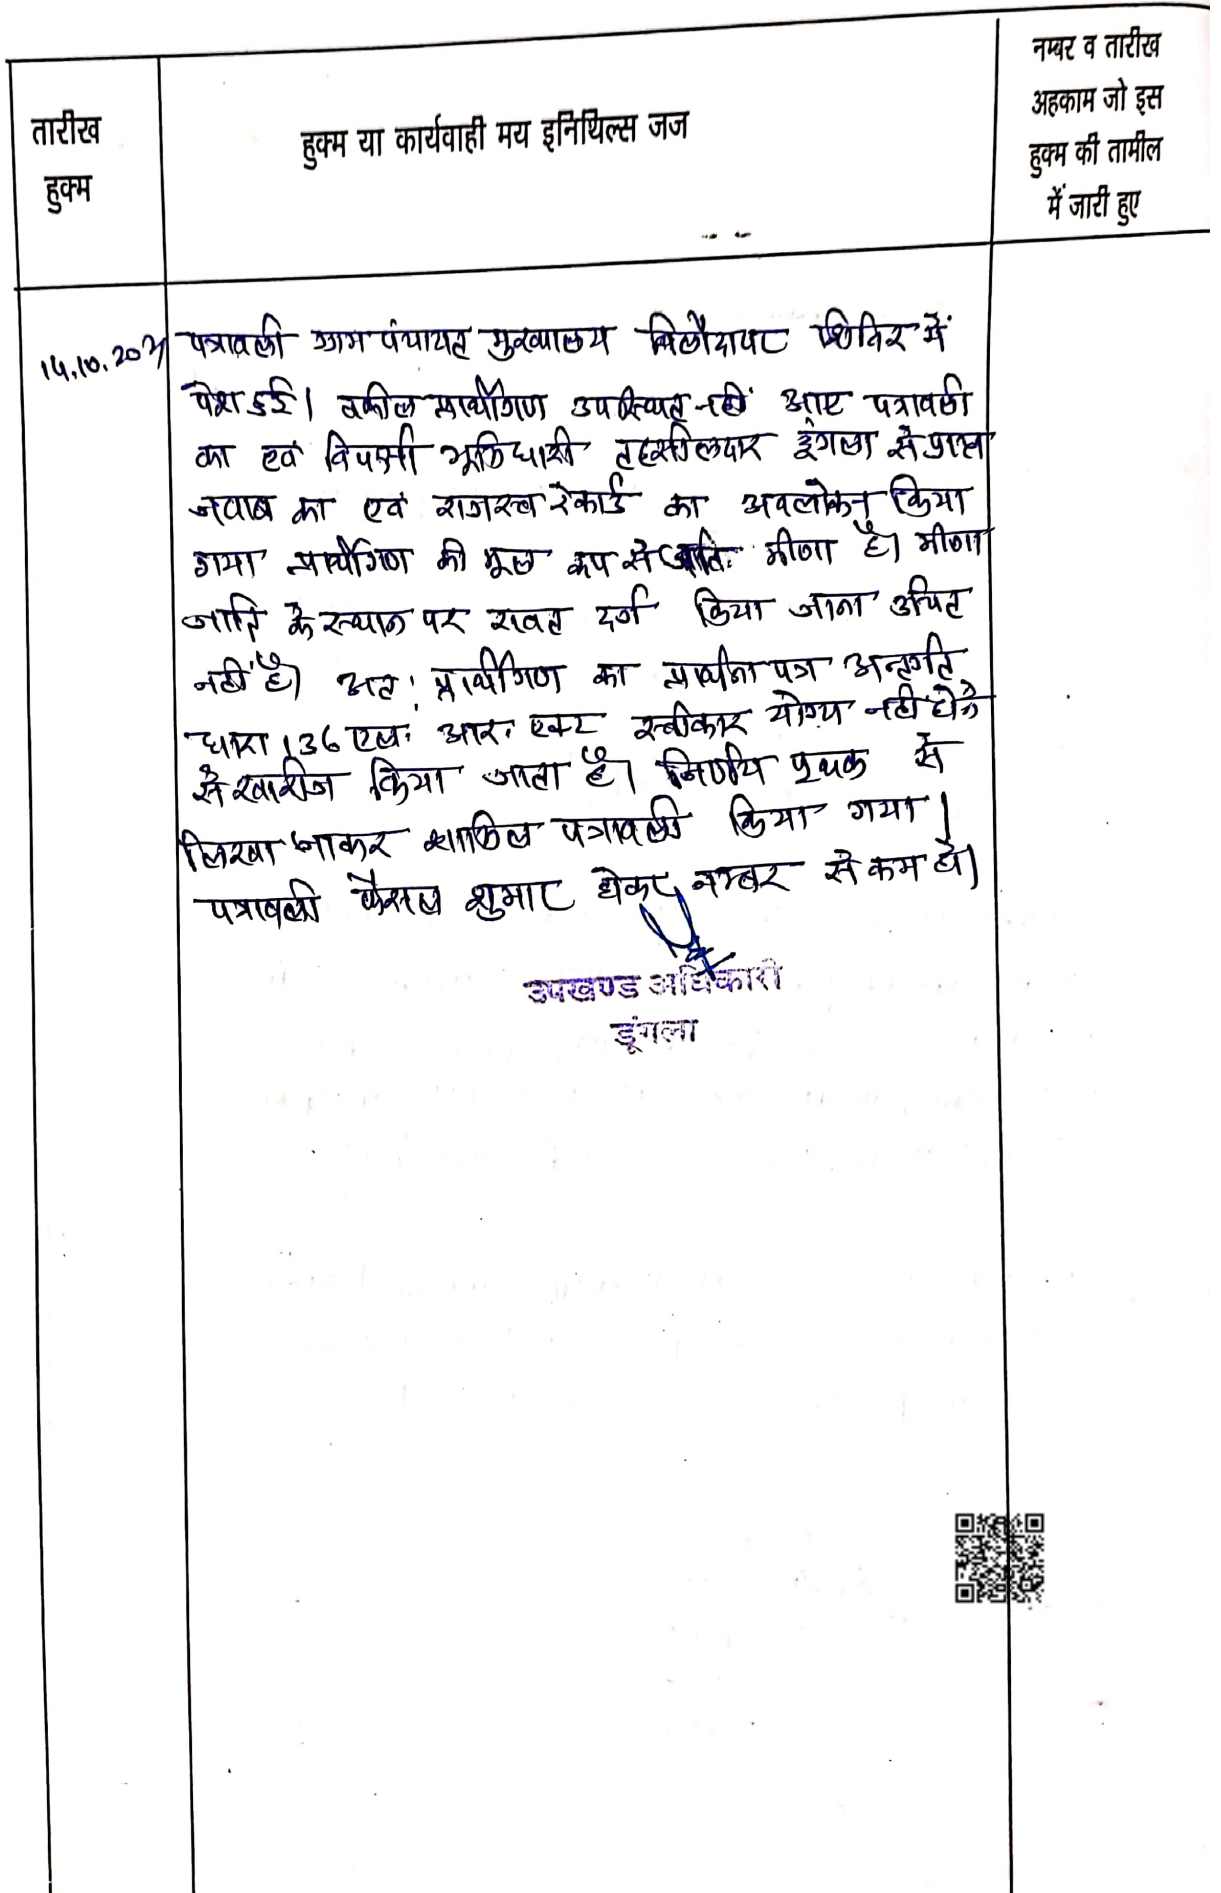 तारीख
हुक्म
हुक्म या कार्यवाही मय इनिथिल्स जज
नम्बर व तारीख
अहकाम जो इस
हुक्म की तामील
में जारी हुए
14.10.2021
पत्रावली ग्राम पंचायत मुख्यालय शिविर में
पेश हुई। वकील प्रार्थीगण उपस्थित नहीं आए पत्रावली
का एवं विपक्षी भूमिधारी तहसीलदार डूंगला से प्राप्त
जवाब का एवं राजस्व रेकार्ड का अवलोकन किया
गया प्रार्थीगण की मूल रूप से जाति मीणा है। मीणा
जाति के स्थान पर रावत दर्ज किया जाना उचित
नहीं है। अतः प्रार्थीगण का प्रार्थना पत्र अन्तर्गत
धारा 136 एल. आर. एक्ट स्वीकार योग्य नहीं होने
से खारीज किया जाता है। निर्णय पृथक से
लिखा जाकर शामिल पत्रावली किया गया।
पत्रावली फैसल शुमार होकर नम्बर से कम हो।
उपखण्ड अधिकारी
डूंगला